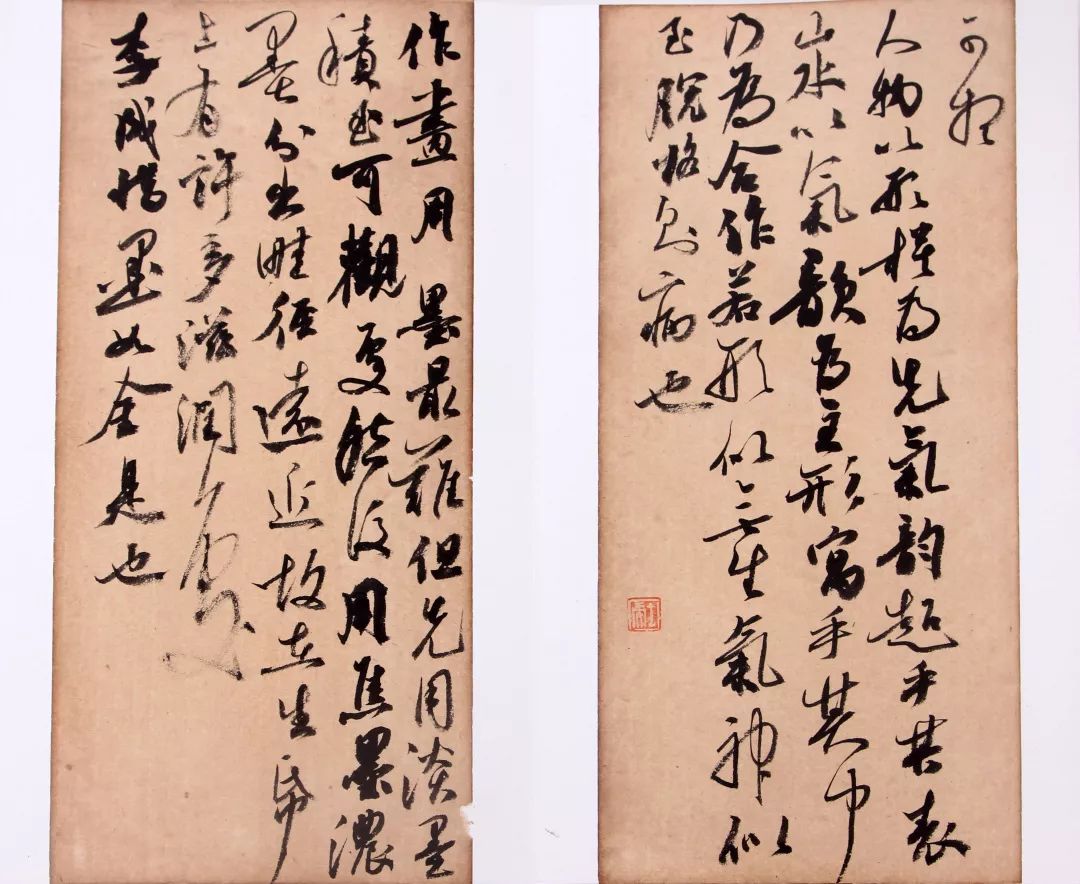 可想
人物以形模为先氣韵超乎其表
山水以氣韻为主形寓乎其中
乃為合作若形似無生氣神似
至脱格則病也
作畫用墨最難但先用淡墨
積至可觀處然後用焦墨濃
墨分出畦徑遠近故在生帋
上有許多滋潤處
李成惜墨如金是也